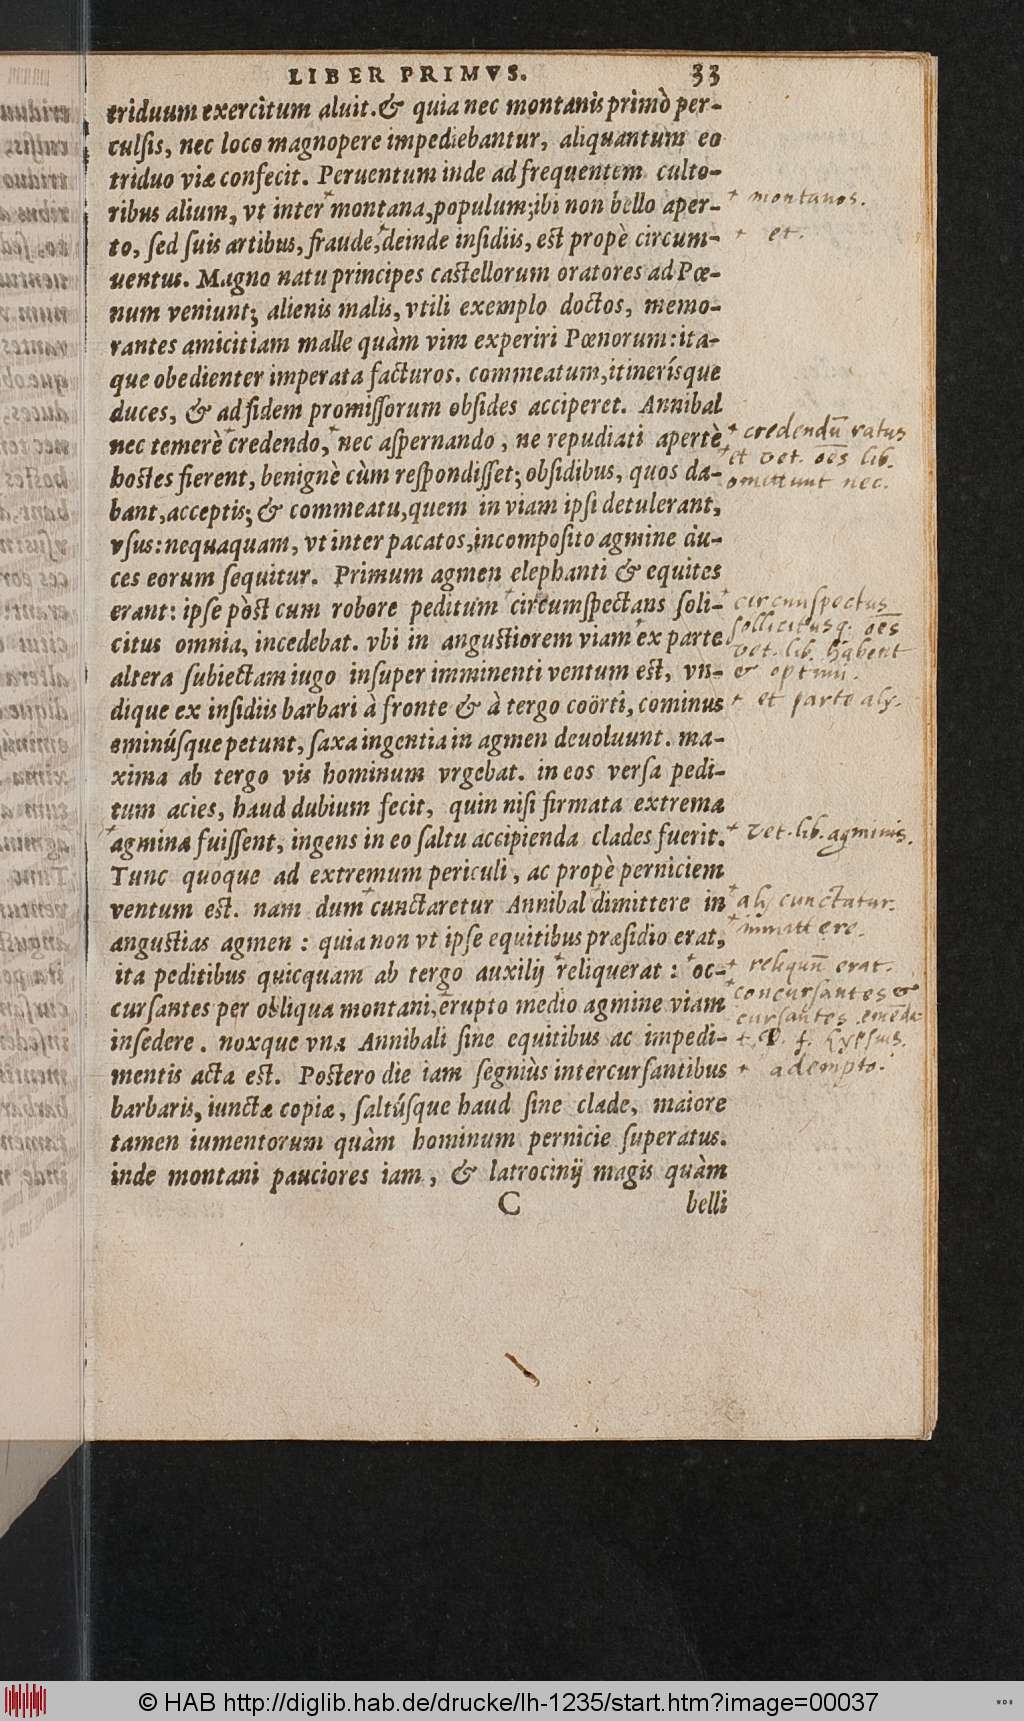 LIBER PRIMVS. 33
triduum exercitum aluit. & quia nec montanis primò per-
culsis, nec loco magnopere impediebantur, aliquantum eo
triduo viæ confecit. Peruentum inde ad frequentem culto-
ribus alium, vt inter montana, populum; ibi non bello aper-
+ montanos.
to, sed suis artibus, fraude, deinde insidiis, est propè circum-
+ et.
uentus. Magno natu principes castellorum oratores ad Pœ-
num veniunt; alienis malis, vtili exemplo doctos, memo-
rantes amicitiam malle quàm vim experiri Pœnorum: ita-
que obedienter imperata facturos. commeatum, itinerísque
duces, & ad fidem promissorum obsides acciperet. Annibal
nec temerè credendo, nec aspernando, ne repudiati apertè
+ credendū ratus
hostes fierent, benignè cùm respondisset; obsidibus, quos da-
+ et vet. oēs lib.
omittunt nec.
bant, acceptis; & commeatu, quem in viam ipsi detulerant,
vsus: nequaquam, vt inter pacatos, incomposito agmine du-
ces eorum sequitur. Primum agmen elephanti & equites
erant: ipse pòst cum robore peditum circumspectans soli-
+ circunspectus
sollicitusq; oēs
citus omnia, incedebat. vbi in angustiorem viam ex parte
vet. lib. habent
altera subiectam iugo insuper imminenti ventum est, vn-
& optimi.
dique ex insidiis barbari à fronte & à tergo coörti, cominus
+ et parte alÿ.
eminúsque petunt, saxa ingentia in agmen deuoluunt. ma-
xima ab tergo vis hominum vrgebat. in eos versa pedi-
tum acies, haud dubium fecit, quin nisi firmata extrema
agmina fuissent, ingens in eo saltu accipienda clades fuerit.
+ vet. lib. agminis.
Tunc quoque ad extremum periculi, ac propè perniciem
ventum est. nam dum cunctaretur Annibal dimittere in
+ alÿ cunctatur.
angustias agmen: quia non vt ipse equitibus præsidio erat,
+ immittere.
ita peditibus quicquam ab tergo auxilij reliquerat: oc-
+ reliquū erat.
cursantes per obliqua montani, erupto medio agmine viam
+ concursantes &
cursantes
insedere. noxque vna Annibali sine equitibus ac impedi-
mentis acta est. Postero die iam segniùs intercursantibus
+ adempto.
barbaris, iunctæ copiæ, saltúsque haud sine clade, maiore
tamen iumentorum quàm hominum pernicie superatus.
inde montani pauciores iam, & latrocinij magis quàm
C belli
© HAB http://diglib.hab.de/drucke/lh-1235/start.htm?image=00037